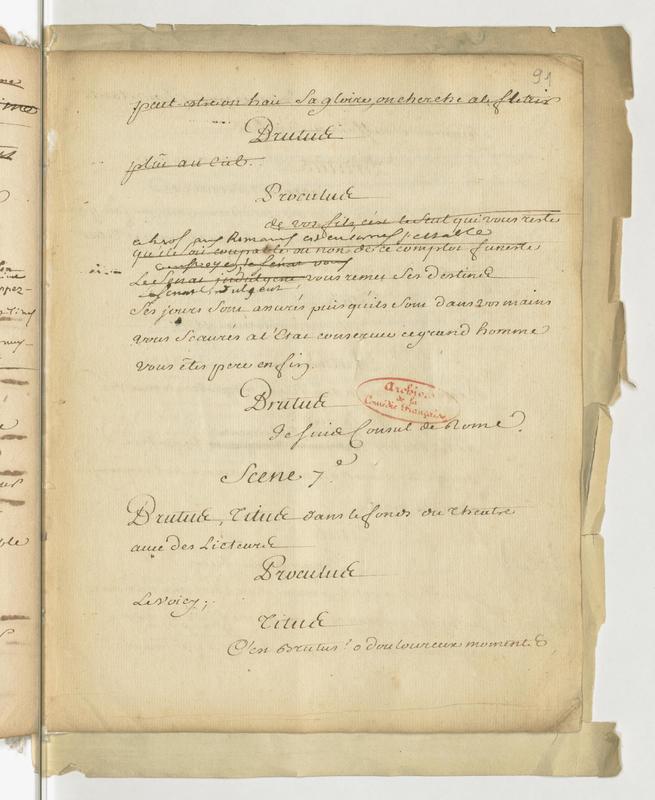 91
peut estre on hait sa gloire, on cherche a la fletrir
Brutus
plût au Ciel.
Proculus
de vos fils c'est le seul qui vous reste
ce heros aux Romains est encore
qu'il soit coupable ou non de ce complot funeste
le Senat vous
Le Senat indulgent vous remet ses destins
Ses jours sont assurés puisqu'ils sont dans vos mains
vous Scaurés a l'Etat conserver ce grand homme
vous êtes pere enfin.
Brutus
Je suis Consul de Rome.
Archives de la Comédie Française
Scene 7.e
Brutus, Titus dans le fonds du theatre
avec des Licteurs
Proculus
Le voicy;
Titus
C'est Brutus! o douloureux moments